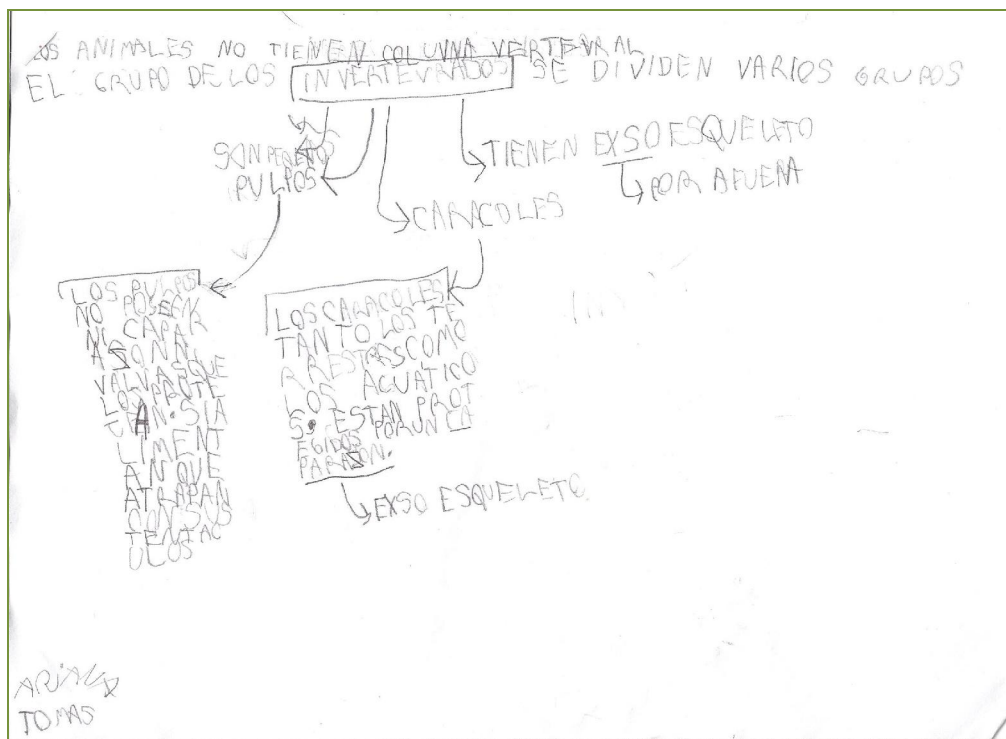 LOS ANIMALES NO TIENEN COLUVNA VERTEVRAL
EL GRUPO DE LOS INVERTEVRADOS SE DIVIDEN VARIOS GRUPOS
SON
PULPOS
TIENEN EXSO ESQUELETO
POR AFUERA
CARACOLES
LOS PULPOS
NO POSEEN
NI CAPAR
ASON NI
VALVAS QUE
LOS PROTE
JAN. SI A
LIMENT
AN QUE
ATRAPAN
CON SUS
TENTAC
ULOS
LOS CARACOLES
TANTO LOS TE
RRESTRES COMO
LOS ACUATICO
S. ESTAN PROT
EGIDOS POR UN CA
PARASON.
EXSO ESQUELETO
TOMAS